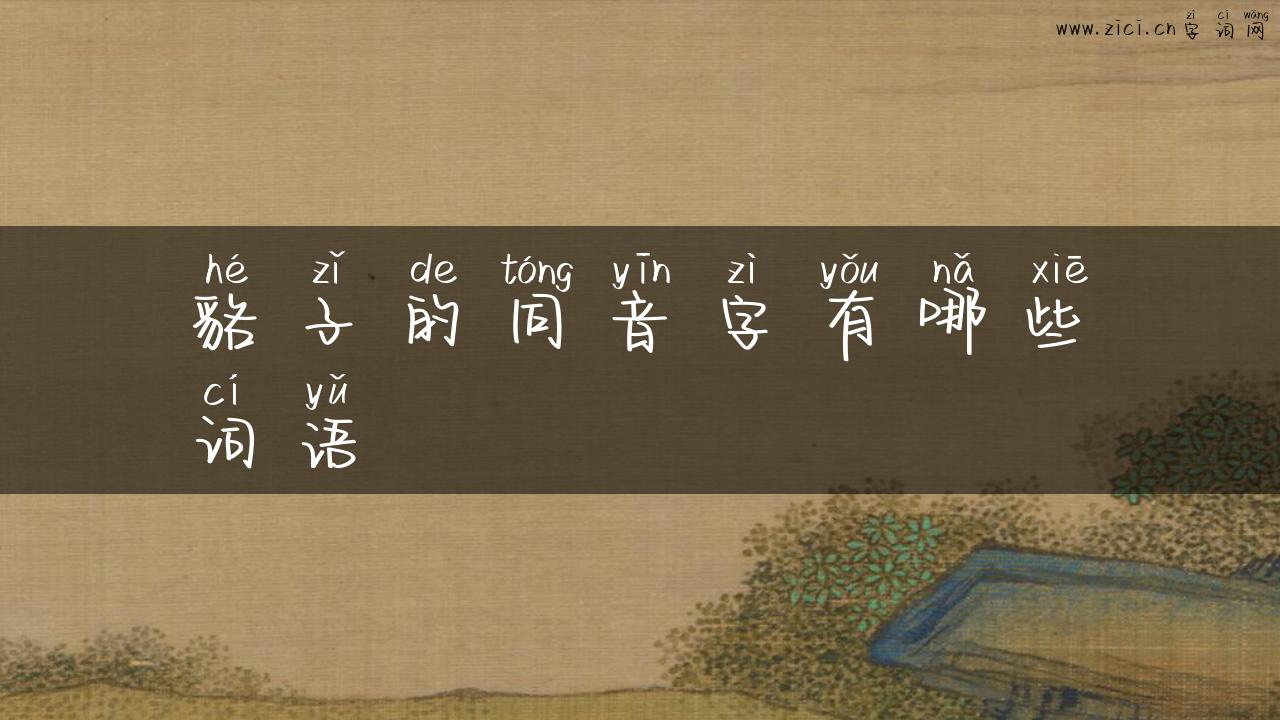 zì cí wǎng
www.zici.cn 字词网
hé zǐ de tóng yīn zì yǒu nǎ xiē
貉子的同音字有哪些
cí yǔ
词语